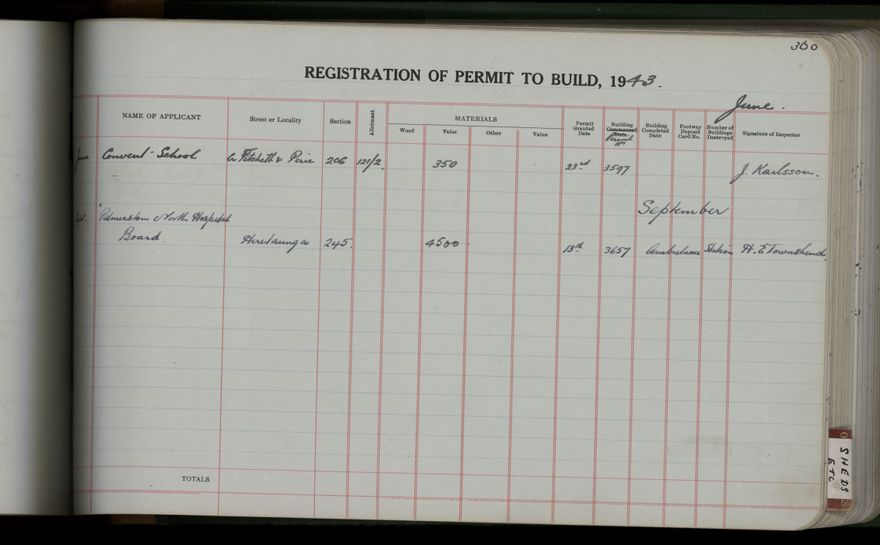 360
REGISTRATION OF PERMIT TO BUILD, 1943.
June.
NAME OF APPLICANT Street or Locality Section Allotment MATERIALS Wood Value Other Value Permit Granted Date Building Commenced Date Permit No. Building Completed Date Footway Deposit Card No. Number of Buildings Destroyed Signature of Inspector
June Convent School Cr Fitchett & Pirie 206 121/2 350 23rd 3597 J. Karlsson.
September
Palmerston North Hospital
Board Heretaunga 245. 4500 13th 3657 Ambulance Station H. E Townshend.
TOTALS
SHEDS
ETC